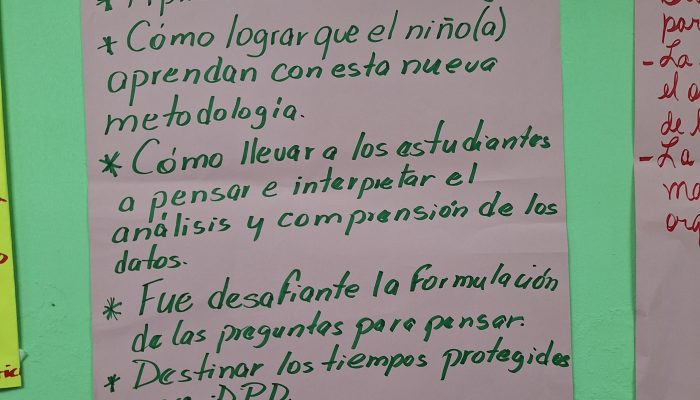 * Cómo lograr que el niño(a)
aprendan con esta nueva
metodología.
* Cómo llevar a los estudiantes
a pensar e interpretar el
análisis y comprensión de los
datos.
* Fue desafiante la formulación
de las preguntas para pensar.
* Destinar los tiempos protegidos
DPD.
- La
el
de
- La